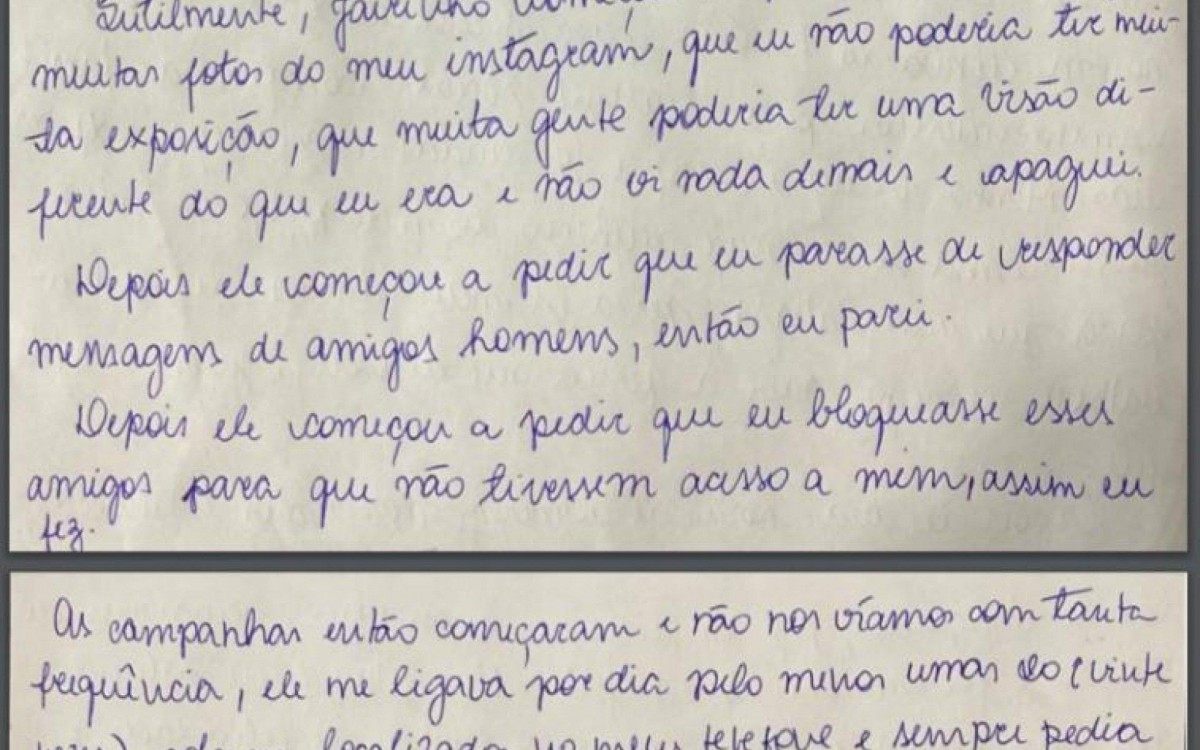 Sutilmente,
muitas fotos do meu instagram, que eu não poderia ter mui-
ta exposição, que muita gente poderia ter uma visão di-
ferente do que eu era e não vi nada demais e apaguei.
Depois ele começou a pedir que eu parasse de responder
mensagens de amigos homens, então eu parei.
Depois ele começou a pedir que eu bloqueasse esses
amigos para que não tivessem acesso a mim, assim eu
fez.
As campanhas então começaram e não nos víamos com tanta
frequência, ele me ligava por dia pelo menos umas 20 (vinte
localizado no meu telefone e sempre pedia